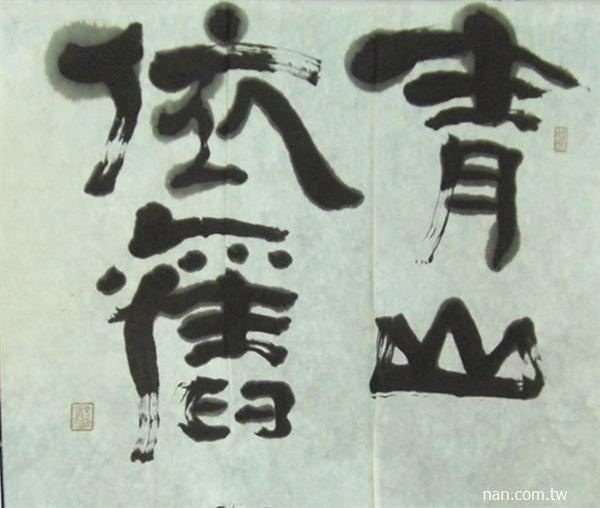 青山
依舊
nan.com.tw